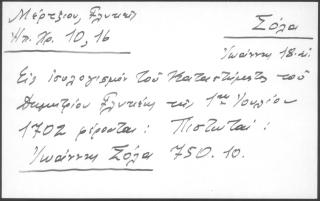 Μέρτζιου, Γλυκεῖ
Ἠπ. Χρ. 10, 16
Σόλα
Ἰωάννης 18. αἰ.
Εἰς ἰσολογισμόν τοῦ Καταστήματος τοῦ
Δημητρίου Γλυκέως τῆς 1ης Ἰουλίου
1702 φέρονται: Πιστωταί:
Ἰωάννης Σόλα 750.10.